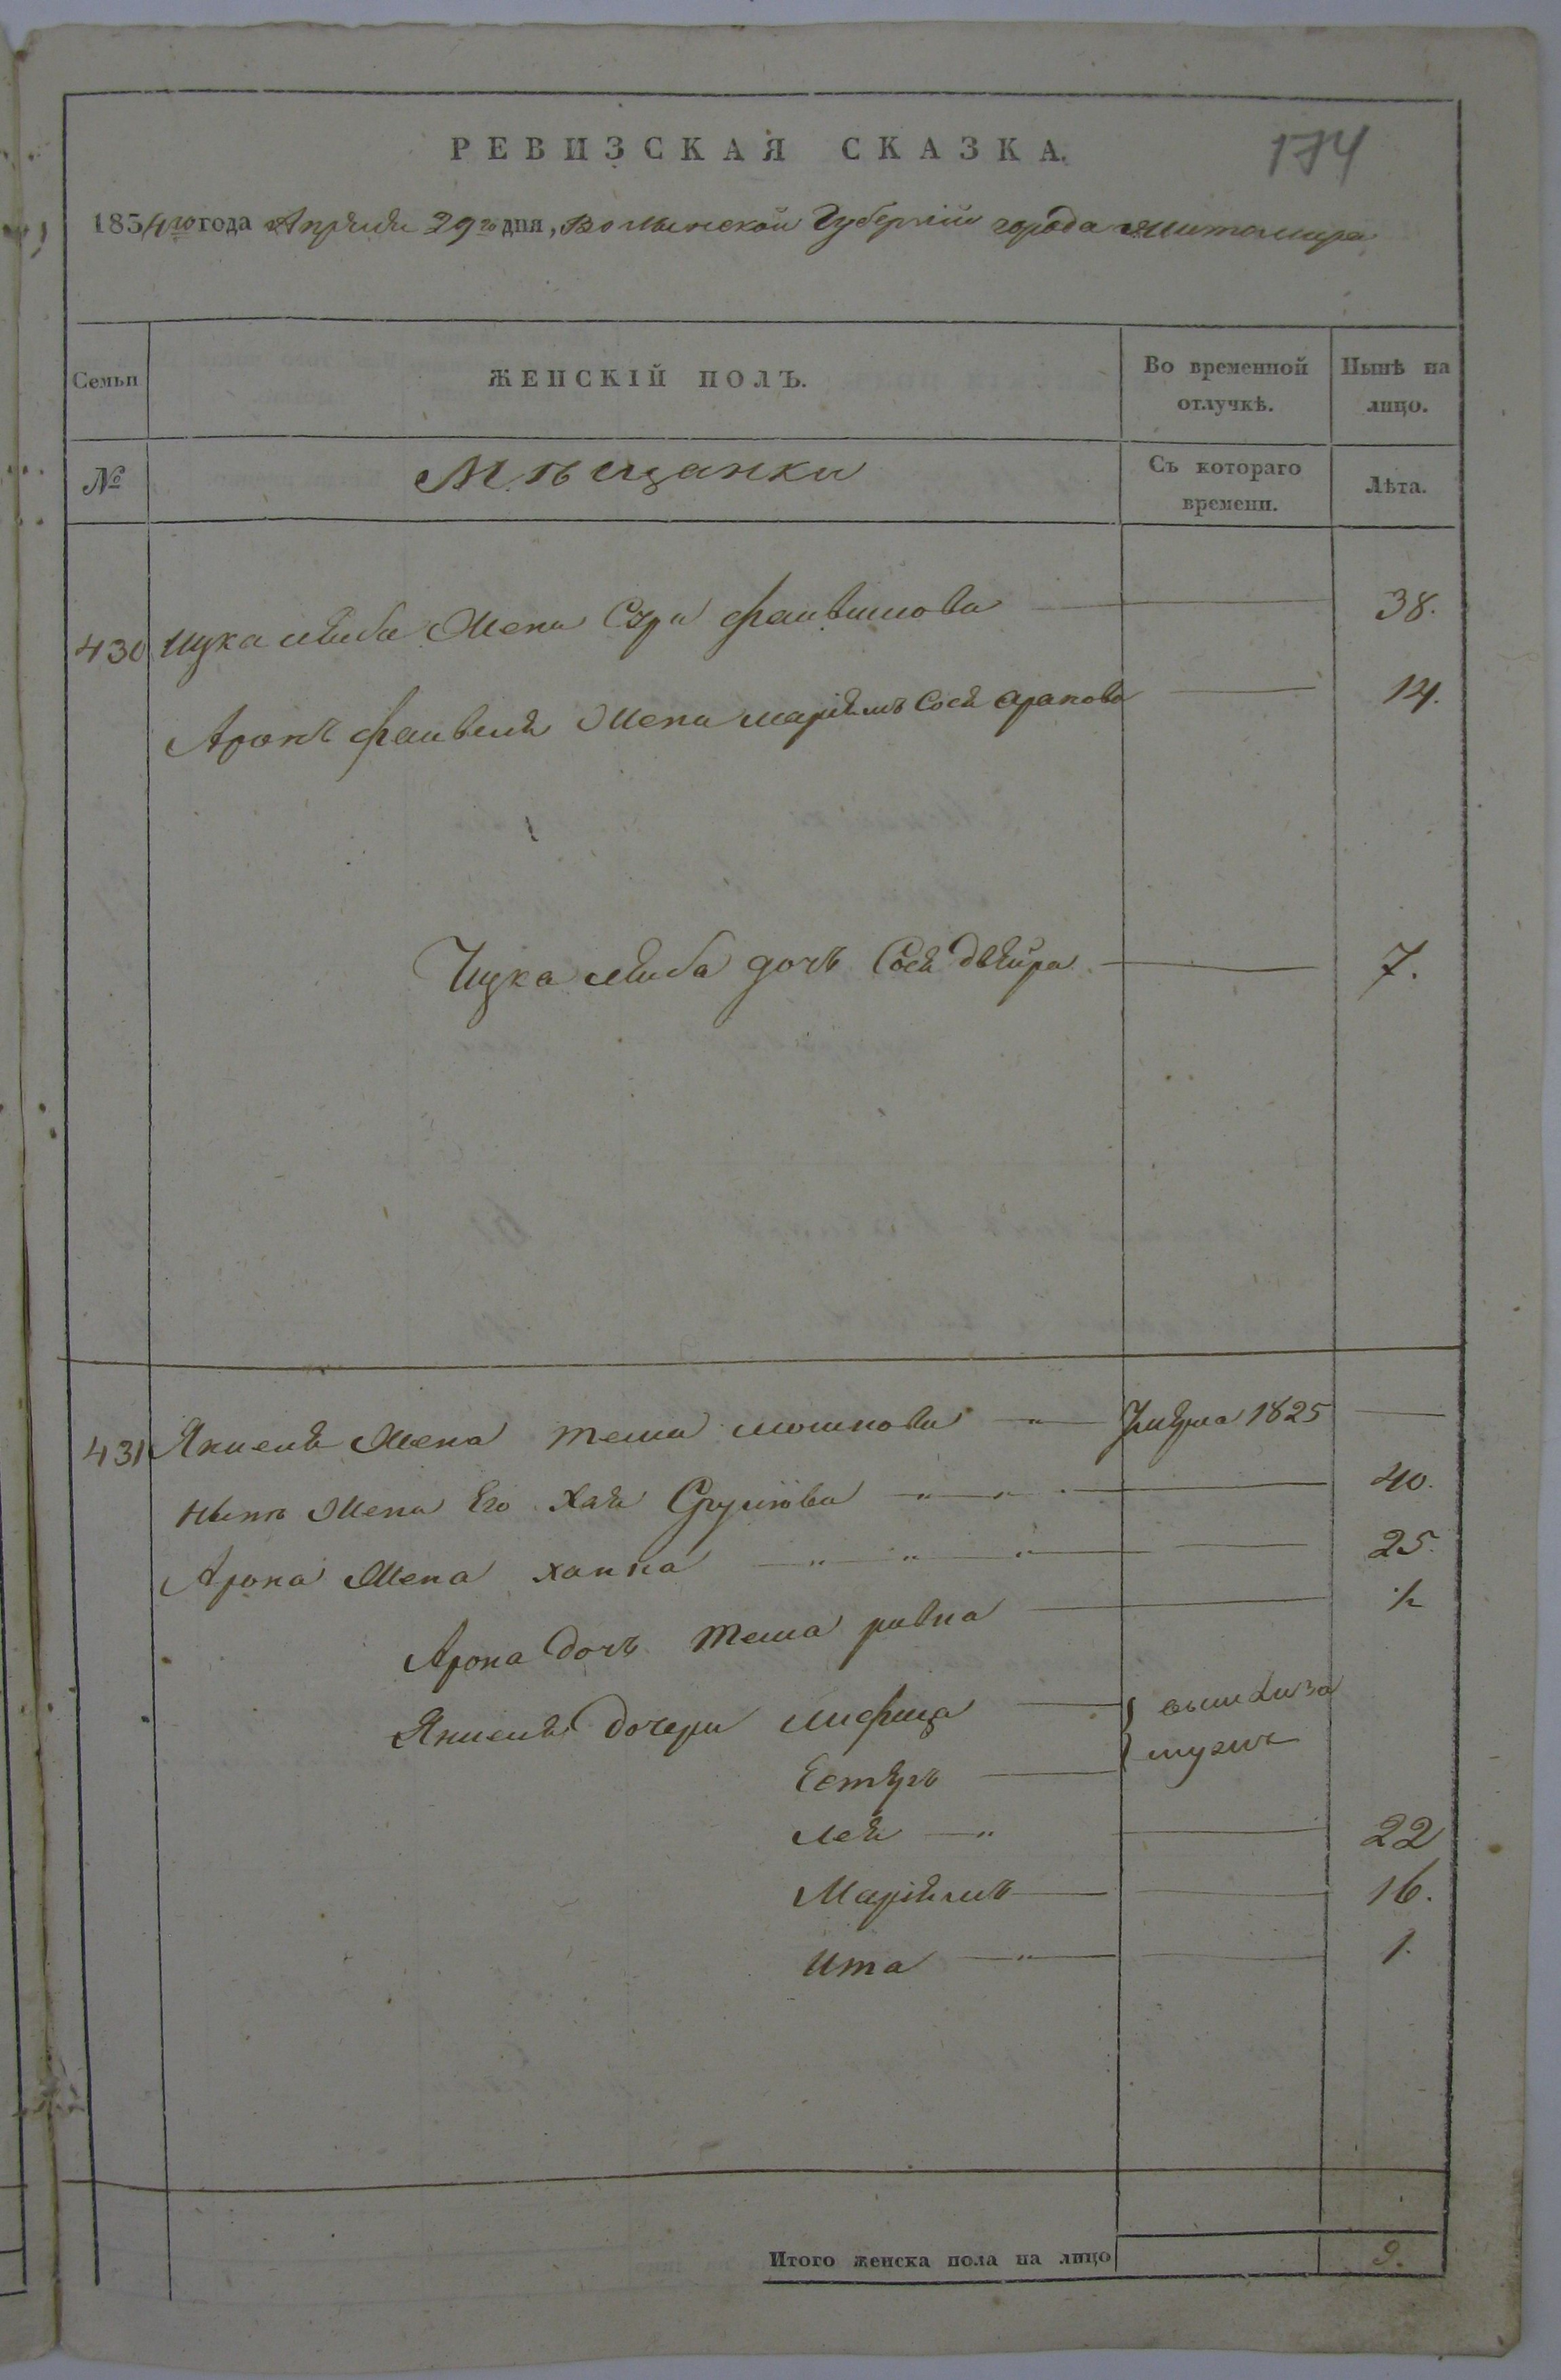 РЕВИЗСКАЯ СКАЗКА.
174
1854го года Апреля 29го дня, Волынской Губернии города Житомира
Семьи
ЖЕНСКІЙ ПОЛЪ.
Во временной отлучкѣ.
Нынѣ на лицо.
№
Мѣщанки
Съ котораго времени.
Лѣта.
430 Ицка Лейба Жена Сура Файвишова 38.
Аронъ Файвеля Жена Маріямъ Сося Аронова 14.
Ицка Лейба дочь Сося Двейра 7.
431 Янкеля Жена Теша Мошкова Умерла 1825
Нынѣ Жена Его Хая Срулиова 40.
Арона Жена Ханна 25.
Арона дочь Теша ривка ½
Янкеля дочери Лифша
Естеръ
вышли за мужъ
Лея 22
Маріямъ 16.
Ита 1.
Итого женска пола на лицо 9.